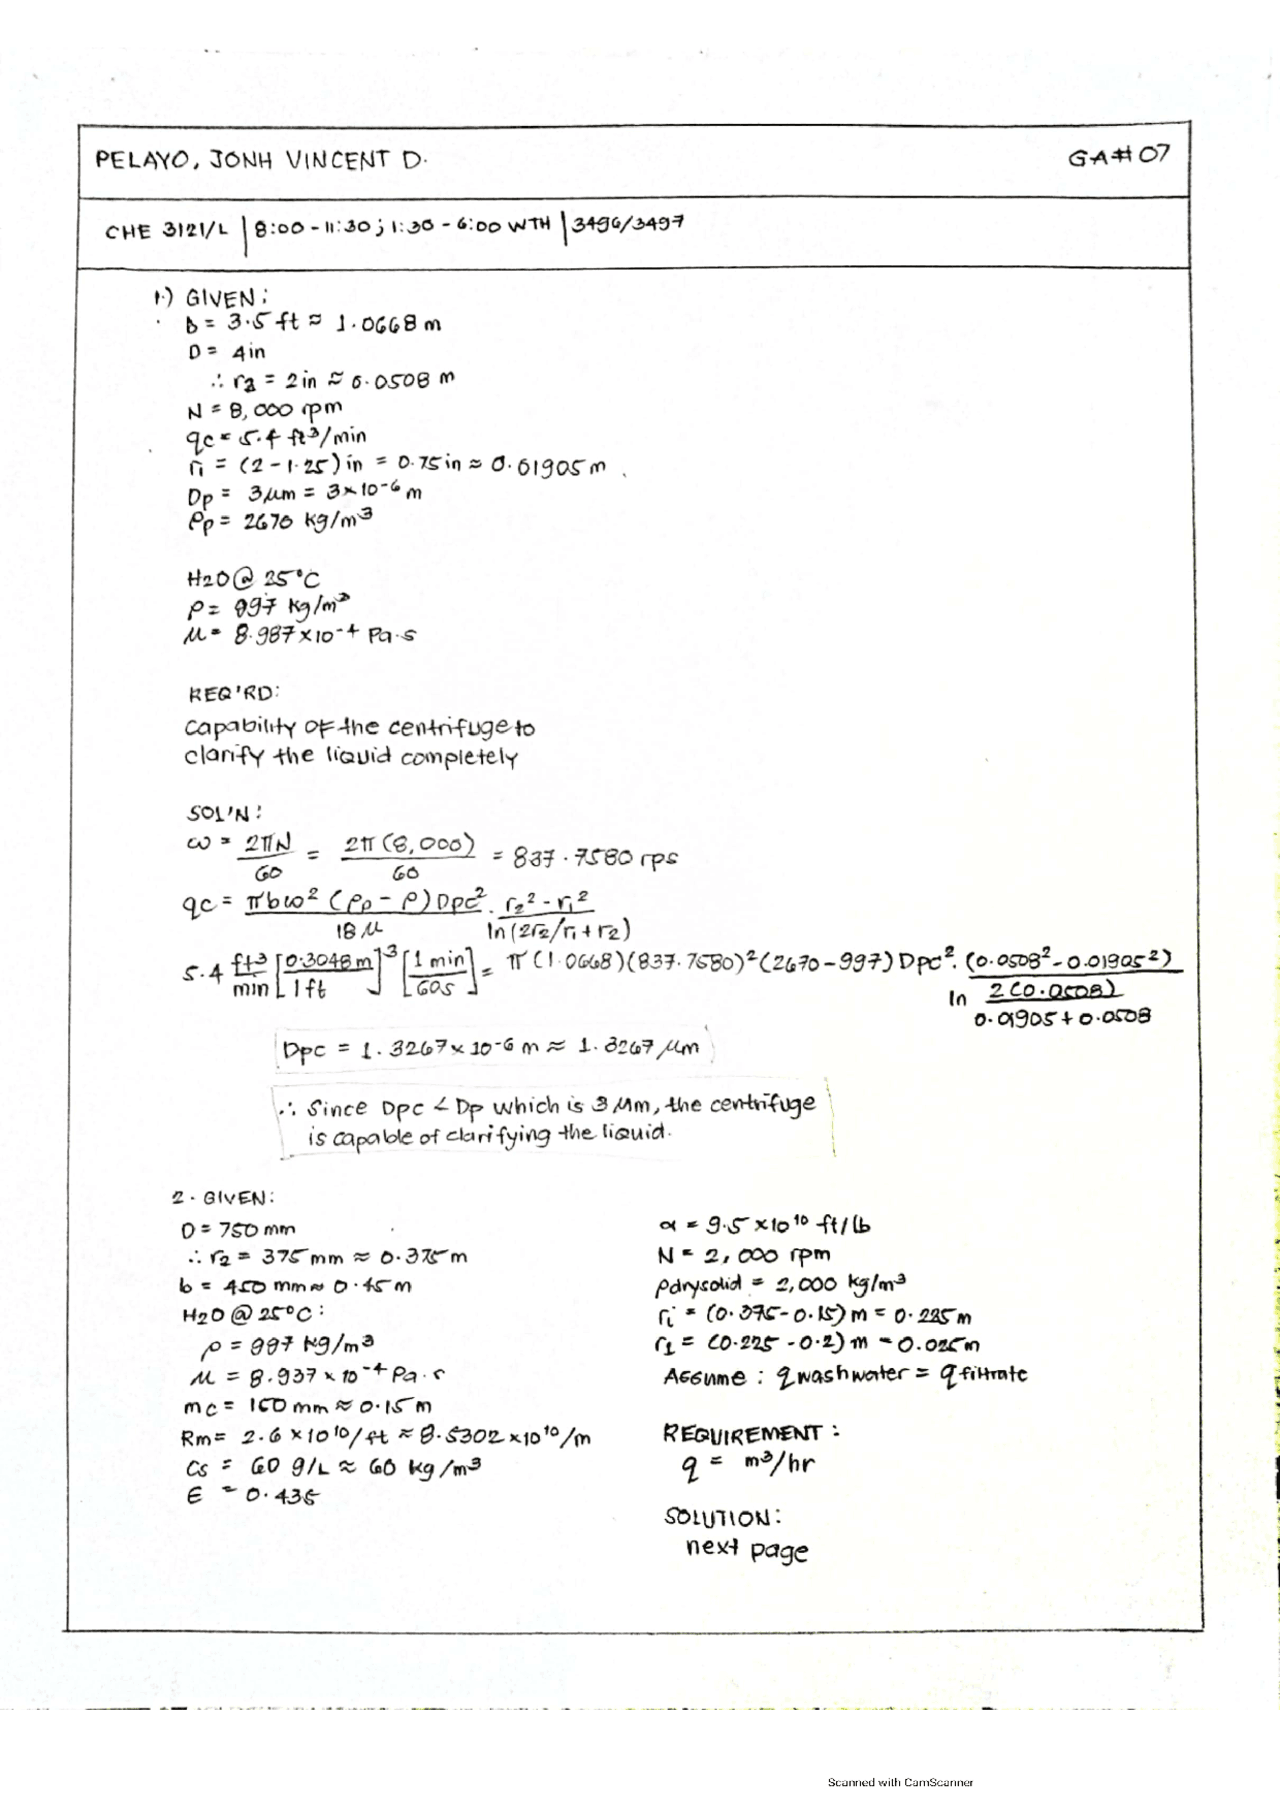 PELAYO, JONH VINCENT D.
GA#07
CHE 3121/L | 8:00 - 11:30 ; 1:30 - 6:00 WTH | 3496/3497
1.) GIVEN:
b = 3.5 ft ≈ 1.0668 m
D = 4in
∴ r2 = 2in ≈ 0.0508 m
N = 8,000 rpm
qc = 5.4 ft³/min
ri = (2-1.25)in = 0.75in ≈ 0.01905 m
Dp = 3μm = 3×10⁻⁶ m
ρp = 2670 kg/m³
H2O @ 25°C
ρ = 997 kg/m³
μ = 8.987×10⁻⁴ Pa·s
REQ'RD:
capability of the centrifuge to
clarify the liquid completely
SOL'N:
ω = 2πN/60 = 2π(8,000)/60 = 837.7580 rps
qc = πbω²(ρp - ρ)Dpc²/18μ · r2² - r1²/ln(2r2/r1+r2)
5.4 ft³/min [0.3048m/1ft]³ [1 min/60s] = π(1.0668)(837.7580)²(2670-997)Dpc² · (0.0508² - 0.01905²)/ln 2(0.0508)/0.01905+0.0508
Dpc = 1.3267×10⁻⁶ m ≈ 1.3267 μm
∴ Since Dpc < Dp which is 3 μm, the centrifuge
is capable of clarifying the liquid.
2. GIVEN:
D = 750 mm
∴ r2 = 375 mm ≈ 0.375 m
b = 450 mm ≈ 0.45 m
H2O @ 25°C:
ρ = 997 kg/m³
μ = 8.937×10⁻⁴ Pa·s
mc = 150 mm ≈ 0.15 m
Rm = 2.6×10¹⁰/ft ≈ 8.5302×10¹⁰/m
Cs = 60 g/L ≈ 60 kg/m³
ε = 0.435
α = 9.5×10¹⁰ ft/lb
N = 2,000 rpm
ρdrysolid = 2,000 kg/m³
ri = (0.375-0.15)m = 0.225m
r1 = (0.225-0.2)m = 0.025m
Assume: qwashwater = qfiltrate
REQUIREMENT:
q = m³/hr
SOLUTION:
next page
Scanned with CamScanner